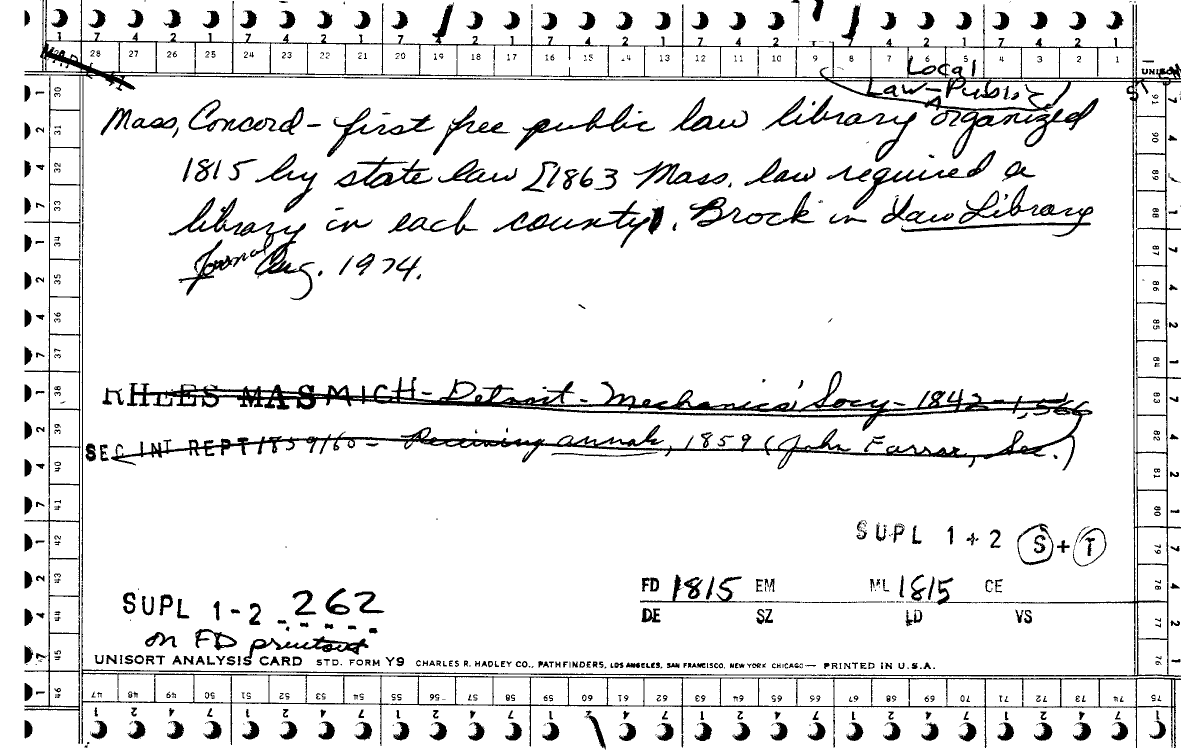 1 7 4 2 1 7 4 2 1 7 4 2 1 7 4 2 1 7 4 2 1 7 4 2 1 7 4 2 1
28 27 26 25 24 23 22 21 20 19 18 17 16 15 14 13 12 11 10 9 8 7 6 5 4 3 2 1
Local
Law-Public
Mass, Concord - first free public law library organized
1815 by state law [1863 Mass. law required a
library in each county]. Brock in Law Library
Journal Aug. 1974.
RHEES MAS MICH - Detroit - Mechanics' Socy - 1842 - 1,566
SEC INT REPT 1859/60 - Receiving annals, 1859 (John Farrar, Sec.)
SUPL 1+2 S+T
FD 1815 EM ML 1815 CE
DE SZ LD VS
SUPL 1-2 262
on FD printout
UNISORT ANALYSIS CARD STD. FORM Y9 CHARLES R. HADLEY CO., PATHFINDERS, LOS ANGELES, SAN FRANCISCO, NEW YORK CHICAGO — PRINTED IN U.S.A.
47 48 49 50 51 52 53 54 55 56 57 58 59 60 61 62 63 64 65 66 67 68 69 70 71 72 73 74 75